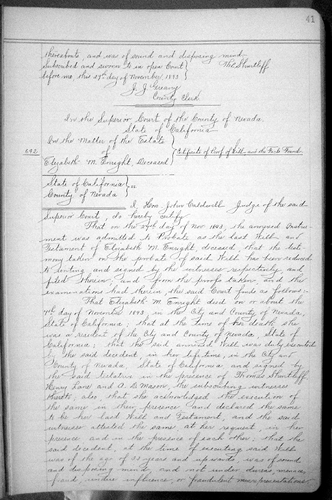 41
thereabouts, and was of sound and disposing mind.
Subscribed and sworn to in open Court } Thos Shurtleff
before me, this 27th day of November, 1893 }
J. J. Greany
County Clerk
In the Superior Court of the County of Nevada,
State of California
In the Matter of the Estate
842 of Certificate of Proof of Will, and the Facts Found.
Elizabeth M. Deceased
State of California }
County of Nevada } ss
I, Hon. John Caldwell Judge of the said
Superior Court, do hereby certify
That on the 27th day of Nov. 1893, the annexed Instru-
ment was admitted to Probate as the last Will and
Testament of Elizabeth M. deceased, that the tes-
timony taken on the probate of said Will has been reduced
to writing and signed by the witnesses respectively, and
filed herein, and from the proofs taken and the
examinations had therein, the said Court finds as follows:
That Elizabeth M. died on or about the
day of November 1893, in the City and County of Nevada,
State of California, that at the time of her death she
was a resident of the City and County of Nevada, State of
California; that the said annexed Will was duly executed
by the said decedent, in her lifetime, in the City and
County of Nevada, State of California and signed by
the said testatrix in the presence of Thomas Shurtleff,
Henry Lane and A. D. Mason, the subscribing witnesses
thereto; also, that she acknowledged the execution of
the same in their presence, and declared the same
to be her last Will and Testament, and the said
witnesses attested the same at her request, in her
presence and in the presence of each other; that the
said decedent, at the time of executing said Will
was of the age of years and upwards, was of sound
and disposing mind, and not under duress, menace,
fraud, undue influence, or fraudulent misrepresentations